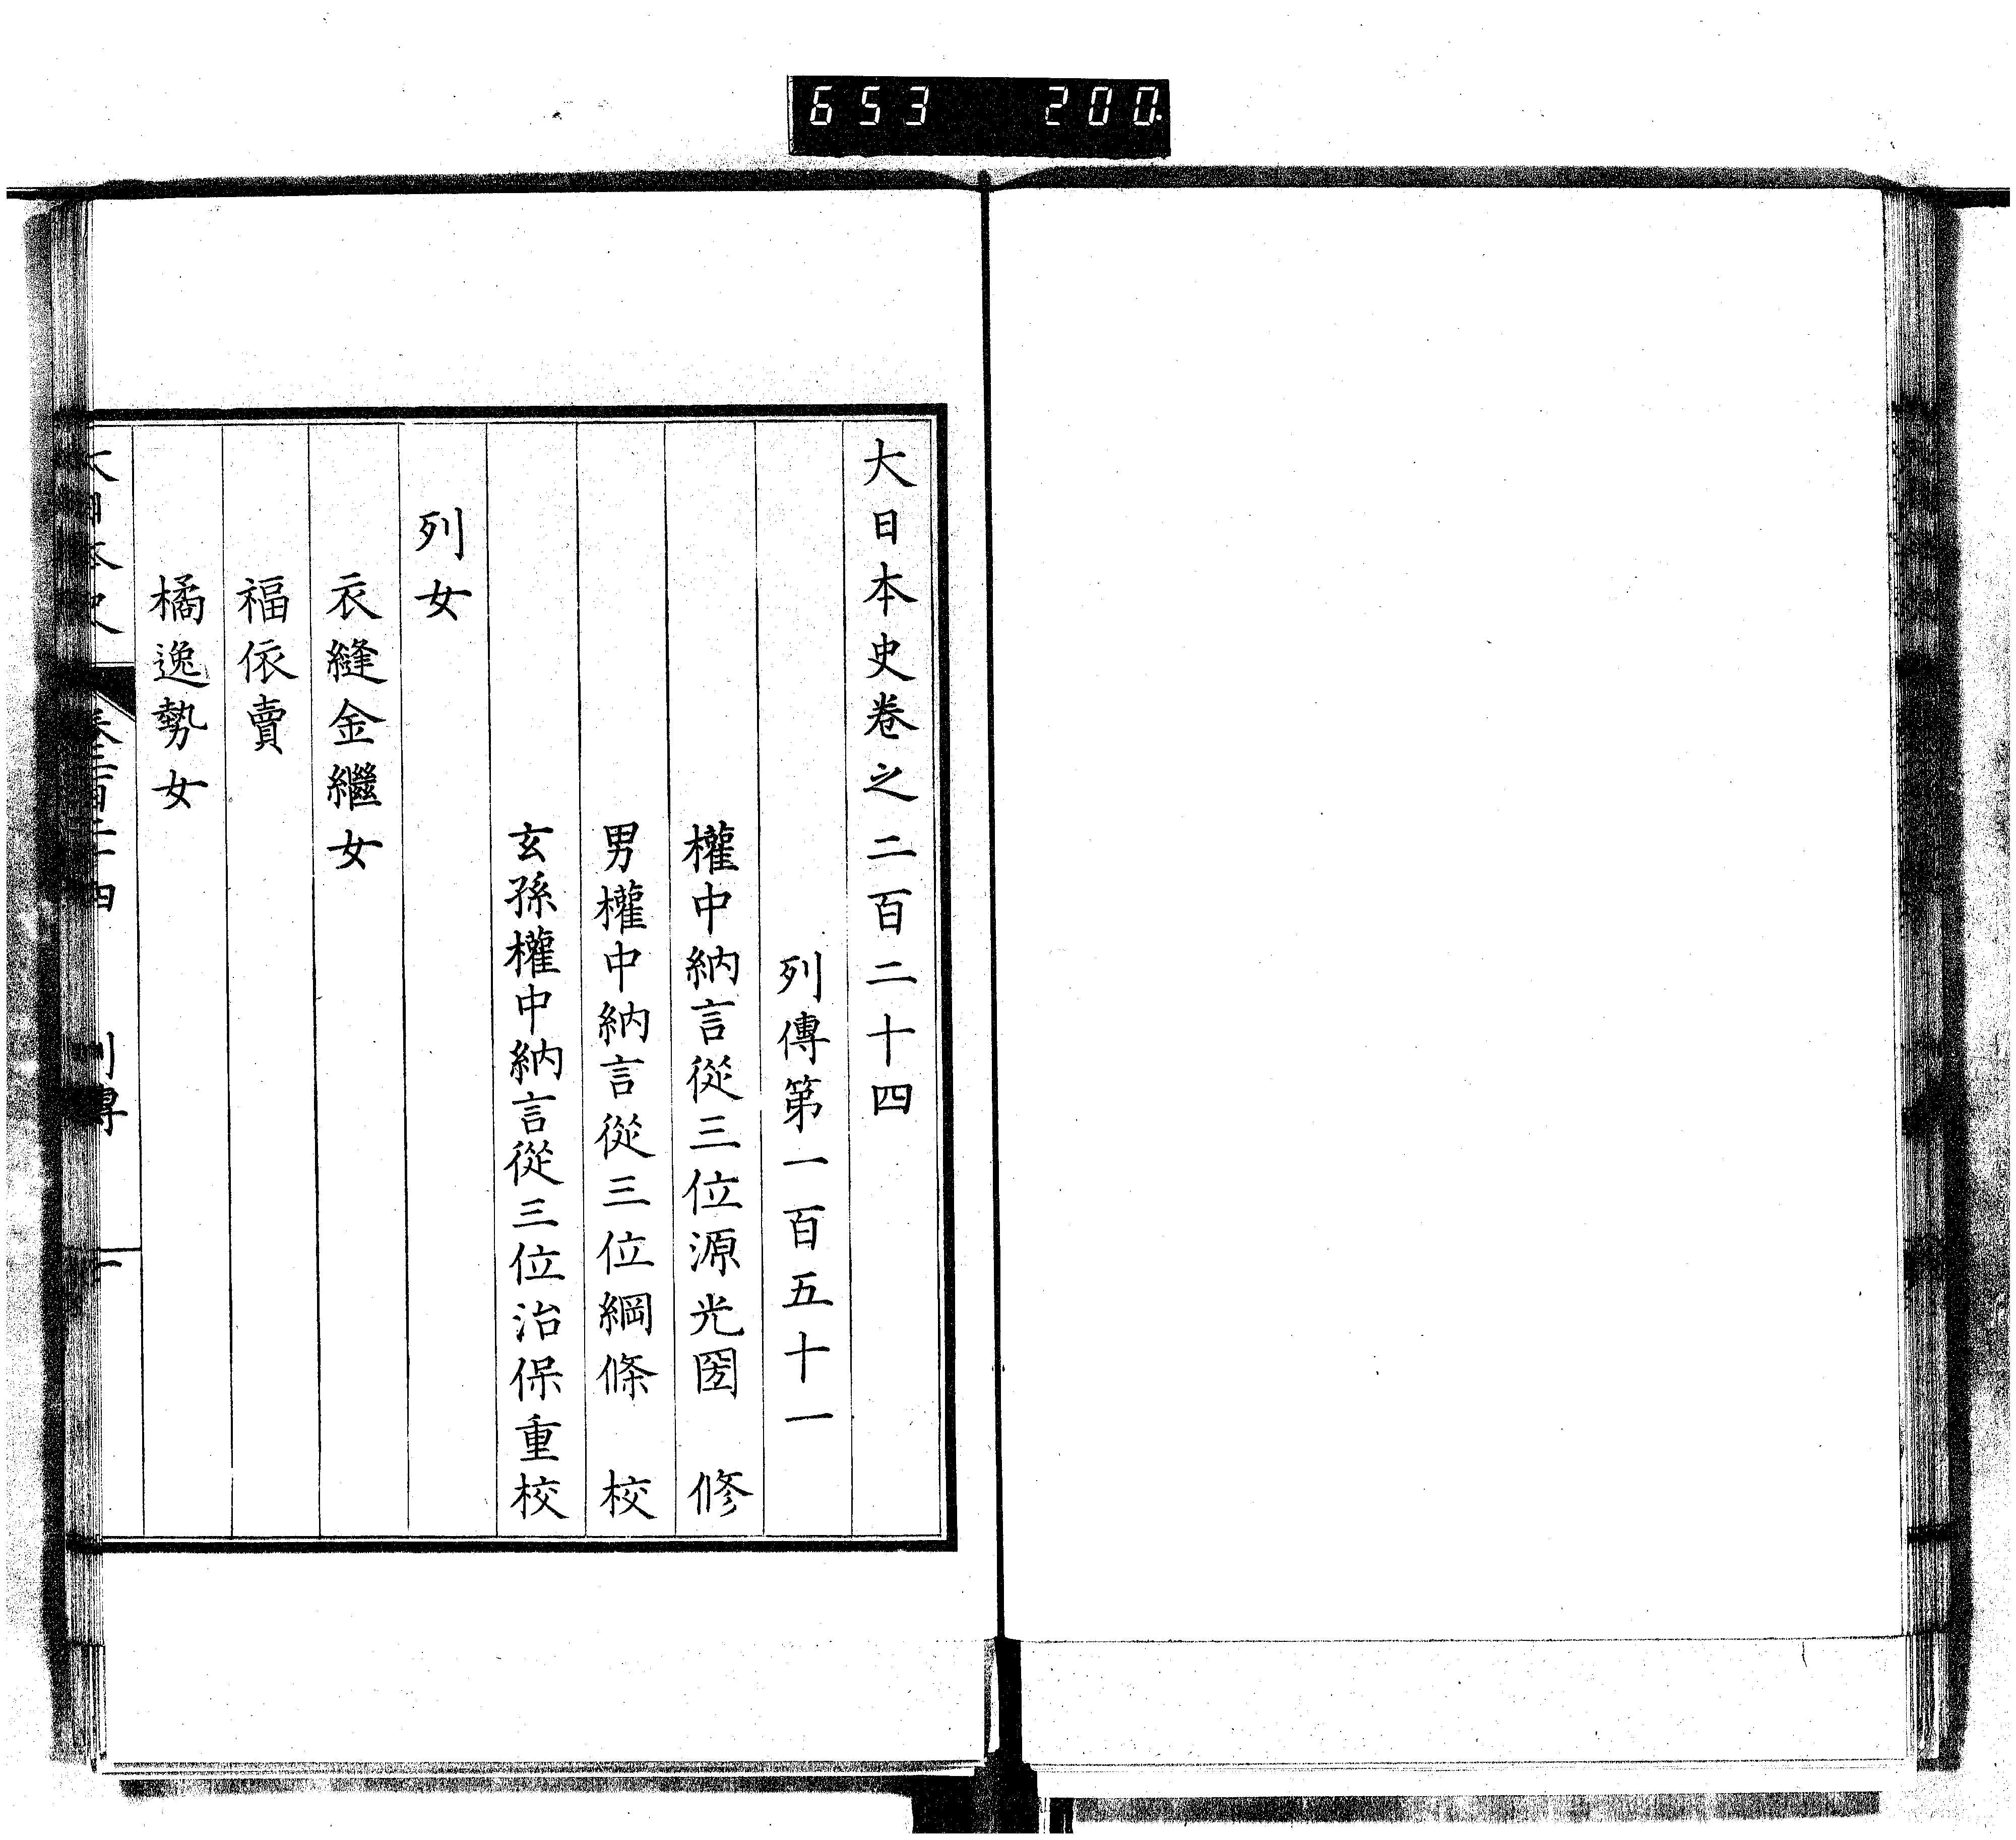 653 200
大日本史卷之二百二十四
列傳第一百五十一
權中納言從三位源光圀 修
男權中納言從三位綱條 校
玄孫權中納言從三位治保重校
列女
衣縫金繼女
福依賣
橘逸勢女